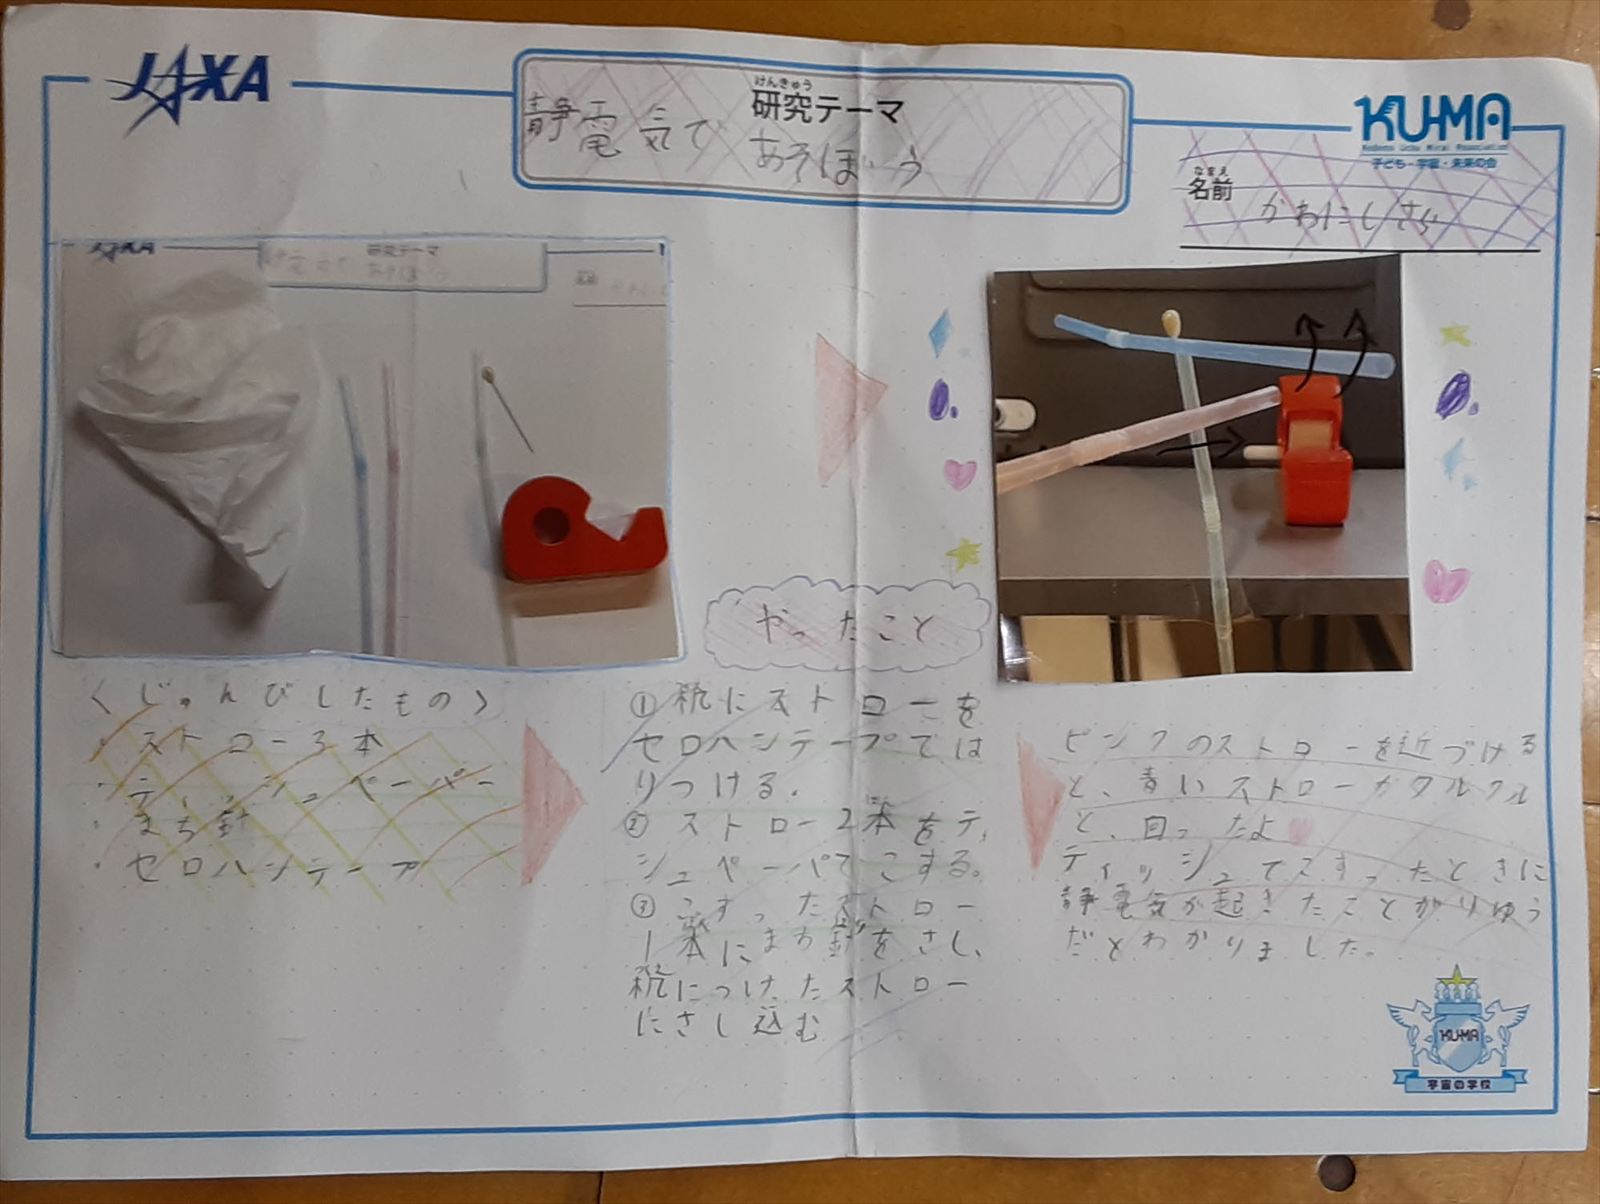 JAXA
けんきゅう
研究テーマ
静電気で あそぼう
KU-MA
Kodomo Uchu Mirai Association
子ども・宇宙・未来の会
なまえ
名前
かわにし さら
研究テーマ
あそぼう
やったこと
〈じゅんびしたもの〉
・ストロー3本
・ティッシュペーパー
・まち針
・セロハンテープ
① 机にストローを
セロハンテープでは
りつける.
② ストロー2本をティッ
シュペーパでこする。
③ こすったストロー
1本にまち針をさし、
机につけたストロー
にさし込む
ピンクのストローを近づける
と、青いストローがクルクル
と、回ったよ
ティッシュでこすったときに
静電気が起きたことがりゆう
だとわかりました。
KU-MA
宇宙の学校